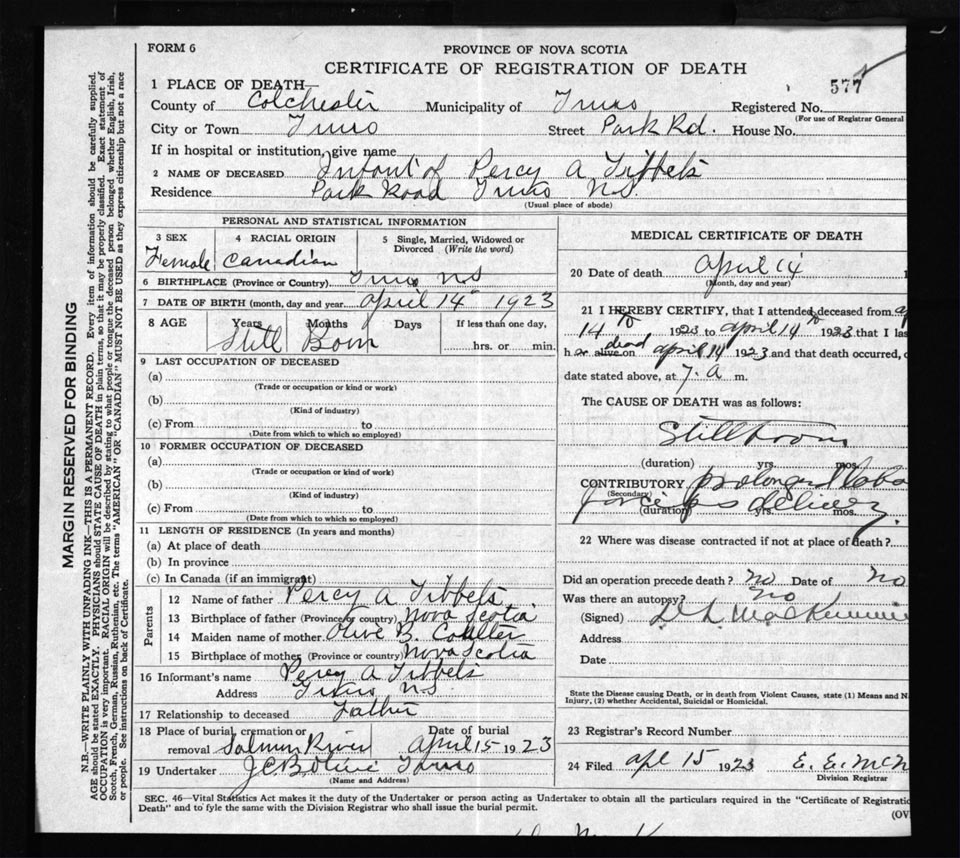 FORM 6
PROVINCE OF NOVA SCOTIA
CERTIFICATE OF REGISTRATION OF DEATH
577
1 PLACE OF DEATH—
County of Colchester Municipality of Truro Registered No.
(For use of Registrar General
City or Town Truro Street Park Rd. House No.
If in hospital or institution, give name
2 NAME OF DECEASED Infant of Percy A Tibbets
Residence Park Road Truro N.S.
(Usual place of abode)
PERSONAL AND STATISTICAL INFORMATION
3 SEX 4 RACIAL ORIGIN 5 Single, Married, Widowed or Divorced (Write the word)
Female Canadian
6 BIRTHPLACE (Province or Country) Truro N S
7 DATE OF BIRTH (month, day and year April 14th 1923
8 AGE Years Months Days If less than one day,
Still Born hrs. or min.
9 LAST OCCUPATION OF DECEASED
(a)
(Trade or occupation or kind or work)
(b)
(Kind of industry)
(c) From to
(Date from which to which so employed)
10 FORMER OCCUPATION OF DECEASED
(a)
(Trade or occupation or kind of work)
(b)
(Kind of industry)
(c) From to
(Date from which to which so employed)
11 LENGTH OF RESIDENCE (In years and months)
(a) At place of death
(b) In province
(c) In Canada (if an immigrant)
Parents
12 Name of father Percy A Tibbets
13 Birthplace of father (Province or country) Nova Scotia
14 Maiden name of mother Olive B. Coulter
15 Birthplace of mother (Province or country) Nova Scotia
16 Informant's name Percy A Tibbets
Address Truro N.S.
17 Relationship to deceased Father
18 Place of burial, cremation or removal Salmon River Date of burial April 15 1923
19 Undertaker Truro
(Name and Address)
MEDICAL CERTIFICATE OF DEATH
20 Date of death April 14
(Month, day and year)
21 I HEREBY CERTIFY, that I attended deceased from
14 th 1923 to April 14 th 1923 that I las
dead
h alive on April 14 1923 and that death occurred,
date stated above, at 7. A m.
The CAUSE OF DEATH was as follows:
Stillborn
(duration) yrs. mos.
CONTRIBUTORY prolonged labo
(Secondary) forceps delivery.
(duration) yrs. mos.
22 Where was disease contracted if not at place of death?
Did an operation precede death? No Date of No
Was there an autopsy? No
(Signed) D L MacK
Address
Date
State the Disease causing Death, or in death from Violent Causes, state (1) Means and N
Injury, (2) whether Accidental, Suicidal or Homicidal.
23 Registrar's Record Number
24 Filed Apl 15 1923 E. E. McN
Division Registrar
SEC. 46—Vital Statistics Act makes it the duty of the Undertaker or person acting as Undertaker to obtain all the particulars required in the "Certificate of Registratio
Death" and to fyle the same with the Division Registrar who shall issue the burial permit.
(OV
MARGIN RESERVED FOR BINDING
N.B.—WRITE PLAINLY WITH UNFADING INK—THIS IS A PERMANENT RECORD. Every item of information should be carefully supplied.
AGE should be stated EXACTLY. PHYSICIANS should STATE CAUSE OF DEATH in plain terms, so that it may be properly classified. Exact statement of
OCCUPATION is very important. RACIAL ORIGIN will be described by stating to what people or tongue the deceased person belonged whether English, Irish,
Scotch, French, German, Russian, Ruthenian, etc. The terms "AMERICAN" OR "CANADIAN" MUST NOT BE USED as they express citizenship but not a race
or people. See instructions on back of Certificate.